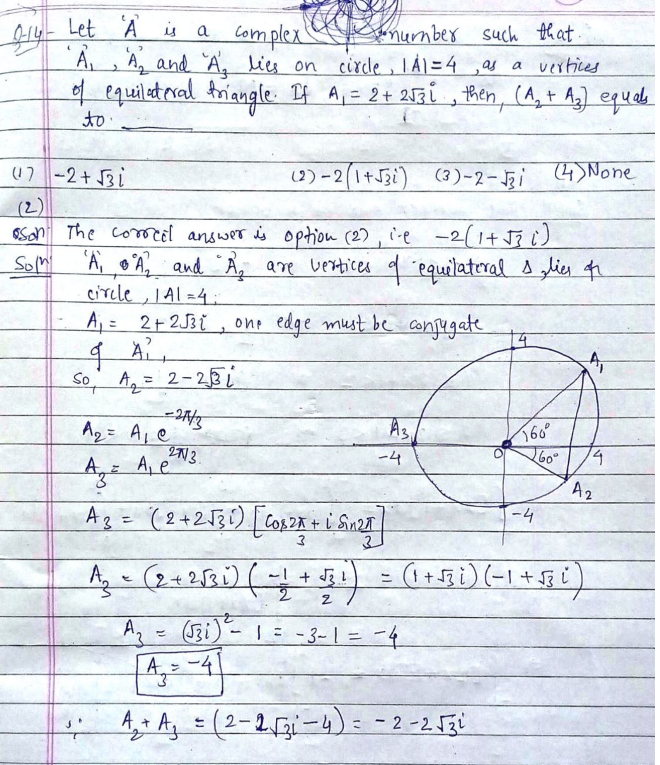 Q-14 - Let 'A' is a complex number such that
'A₁', 'A₂' and 'A₃' lies on circle, |A|=4, as a vertices
of equilateral triangle. If A₁ = 2+2√3i, then, (A₂+A₃) equals
to. ______
(1) -2+√3i (2) -2(1+√3i) (3) -2-√3i (4) None
(2)
The correct answer is option (2), i.e -2(1+√3i)
Solⁿ 'A₁' 'A₂' and 'A₃' are vertices of equilateral Δ, lies on
circle, |A|=4;
A₁ = 2+2√3i, one edge must be conjugate
of 'A₁',
so, A₂ = 2-2√3i
A₂ = A₁e^(-2π/3)
A₃ = A₁e^(2π/3)
A₃ = (2+2√3i)[cos 2π/3 + i sin 2π/3]
A₃ = (2+2√3i)(-1/2 + √3i/2) = (1+√3i)(-1+√3i)
A₃ = (√3i)² - 1 = -3-1 = -4
A₃ = -4
∴ A₂+A₃ = (2-2√3i-4) = -2-2√3i
4
A₁
A₃
60°
-4
O
60°
4
A₂
-4